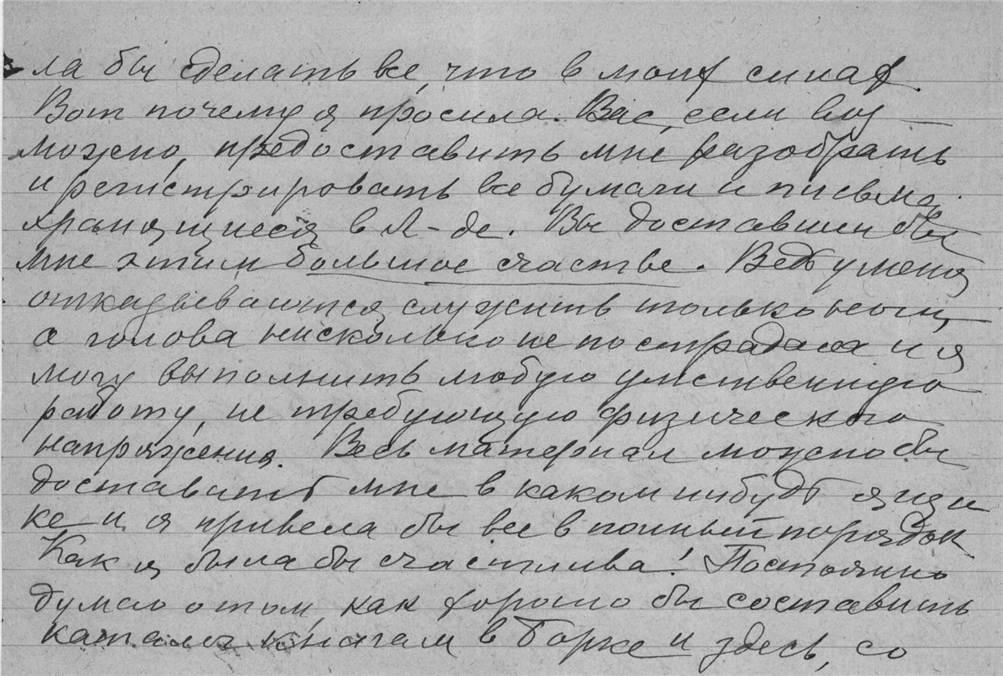 ла бы сделать все, что в моих силах.
Вот почему я просила Вас, если воз-
можно, предоставить мне разобрать
и регистрировать все бумаги и письма,
хранящиеся в Л-де. Вы доставили бы
мне этим большое счастье. Ведь у меня
отказываются служить только ноги,
а голова нисколько не пострадала и я
могу выполнить любую умственную
работу, не требующую физического
напряжения. Весь материал можно бы
доставить мне в каком нибудь ящи
ке и я привела бы все в полный порядок
Как я была бы счастлива! Постоянно
думаю о том, как хорошо бы составить
каталог книгам в Борке и здесь, со